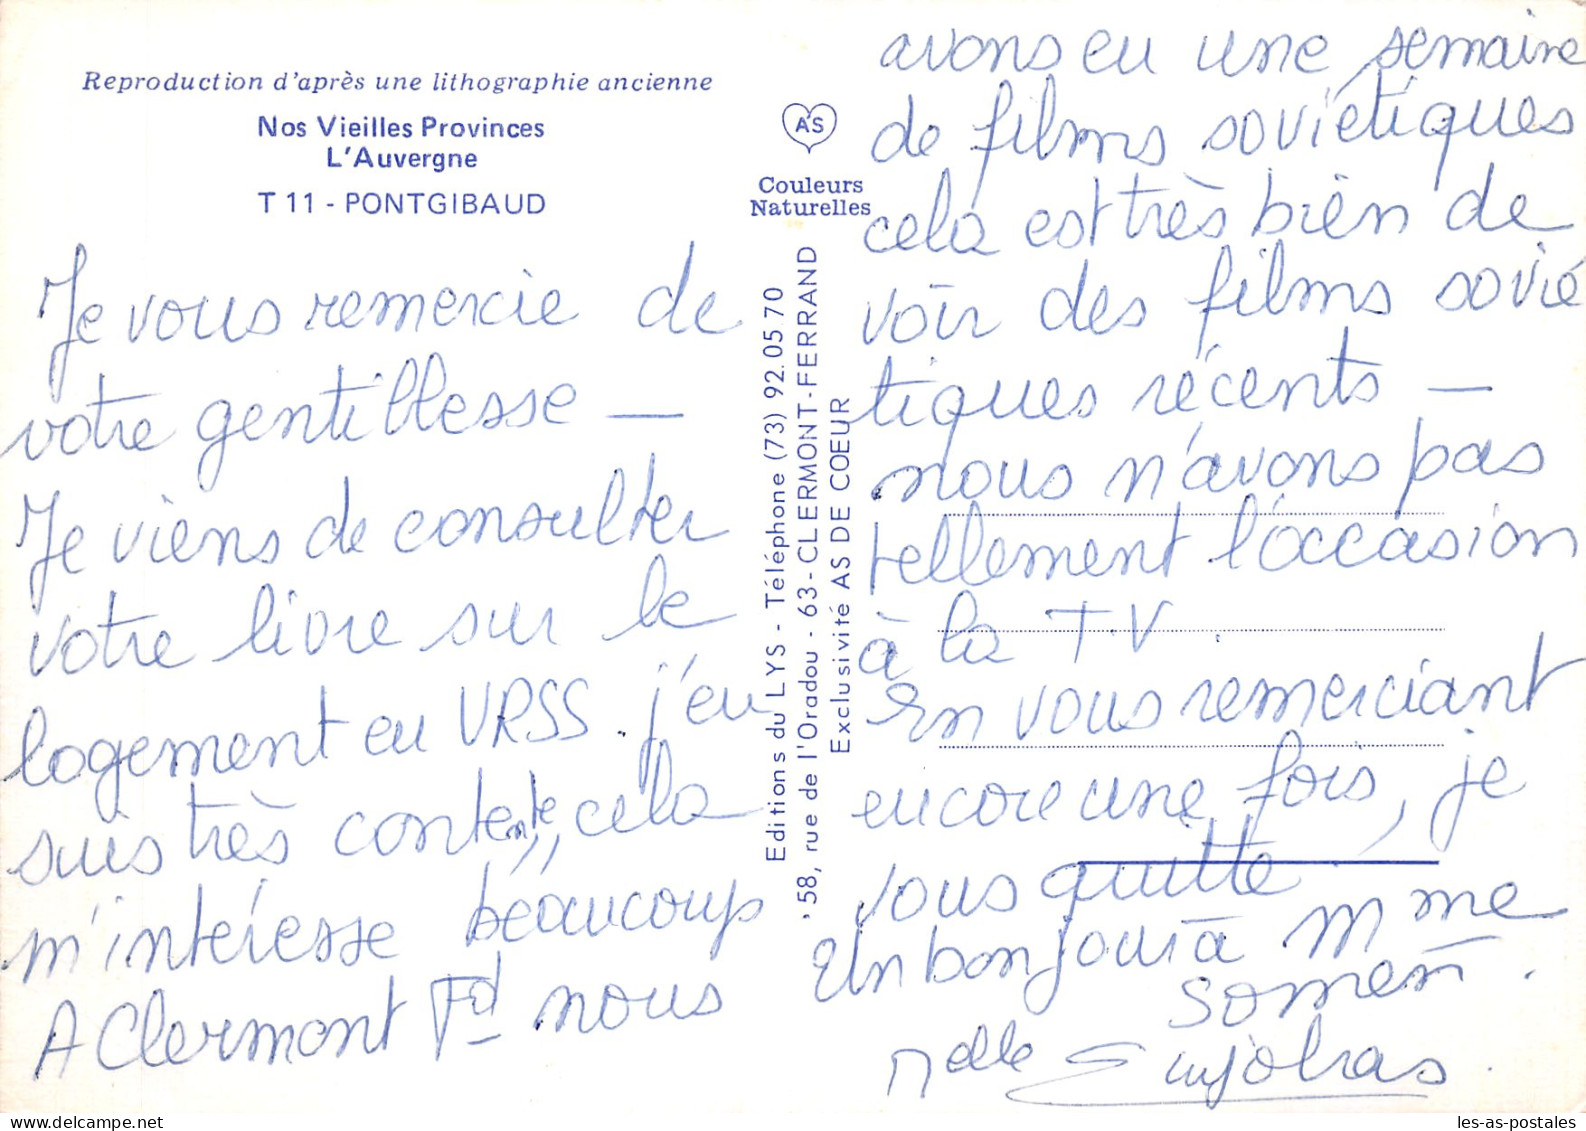 Reproduction d'après une lithographie ancienne
Nos Vieilles Provinces
L'Auvergne
T 11 - PONTGIBAUD
Je vous remercie de
votre gentillesse —
Je viens de consulter
votre livre sur le
logement en URSS. j'en
suis très contente, cela
m'intéresse beaucoup
A Clermont Fd nous
AS
Couleurs
Naturelles
Editions du LYS - Téléphone (73) 92.05 70
58, rue de l'Oradou - 63 - CLERMONT-FERRAND
Exclusivité AS DE COEUR
avons eu une semaine
de films soviétiques
cela est très bien de
voir des films sovié
tiques récents —
nous n'avons pas
tellement l'occasion
à la T.V.
En vous remerciant
encore une fois, je
vous quitte.
Un bonjour à Mme
Somen.
Melle Enjolras.
les-as-postales